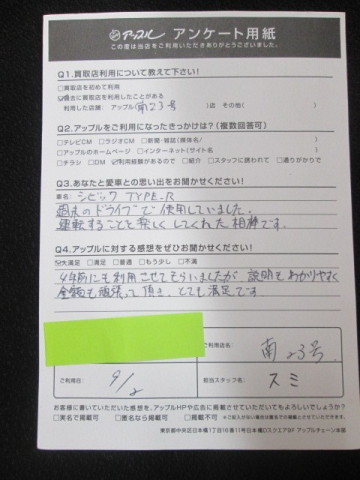 アップル アンケート用紙
この度は当店をご利用いただきありがとうございました。
Q1.買取店利用について教えて下さい!
□買取店を初めて利用
☑過去に買取店を利用したことがある
利用した店舗: アップル(南23号)店 その他( )
Q2.アップルをご利用になったきっかけは?(複数回答可)
□テレビCM □ラジオCM □新聞・雑誌(媒体名/ )
□アップルのホームページ □インターネット(サイト名 )
□チラシ □DM ☑利用経験があるので □紹介 □スタッフに誘われて □通りがかりで
Q3.あなたと愛車との思い出をお聞かせください!
車名: シビック TYPE-R
週末のドライブで使用していました。
運転することを楽しくしてくれた相棒です。
Q4.アップルに対する感想をぜひお聞かせください!
☑大満足 □満足 □普通 □もう少し □不満
4年前にも利用させてもらいましたが、説明もわかりやすく
金額も頑張って頂き、とても満足です。
ご利用店名: 南23号
ご利用日 9/2 担当スタッフ名: スミ
お客様に書いていただいた感想を、アップルHPや広告に掲載させていただいてもよろしいでしょうか?
□実名で掲載可 □匿名なら掲載可 □掲載不可
東京都中央区日本橋1丁目16番11号日本橋Dスクエア9F アップルチェーン本部